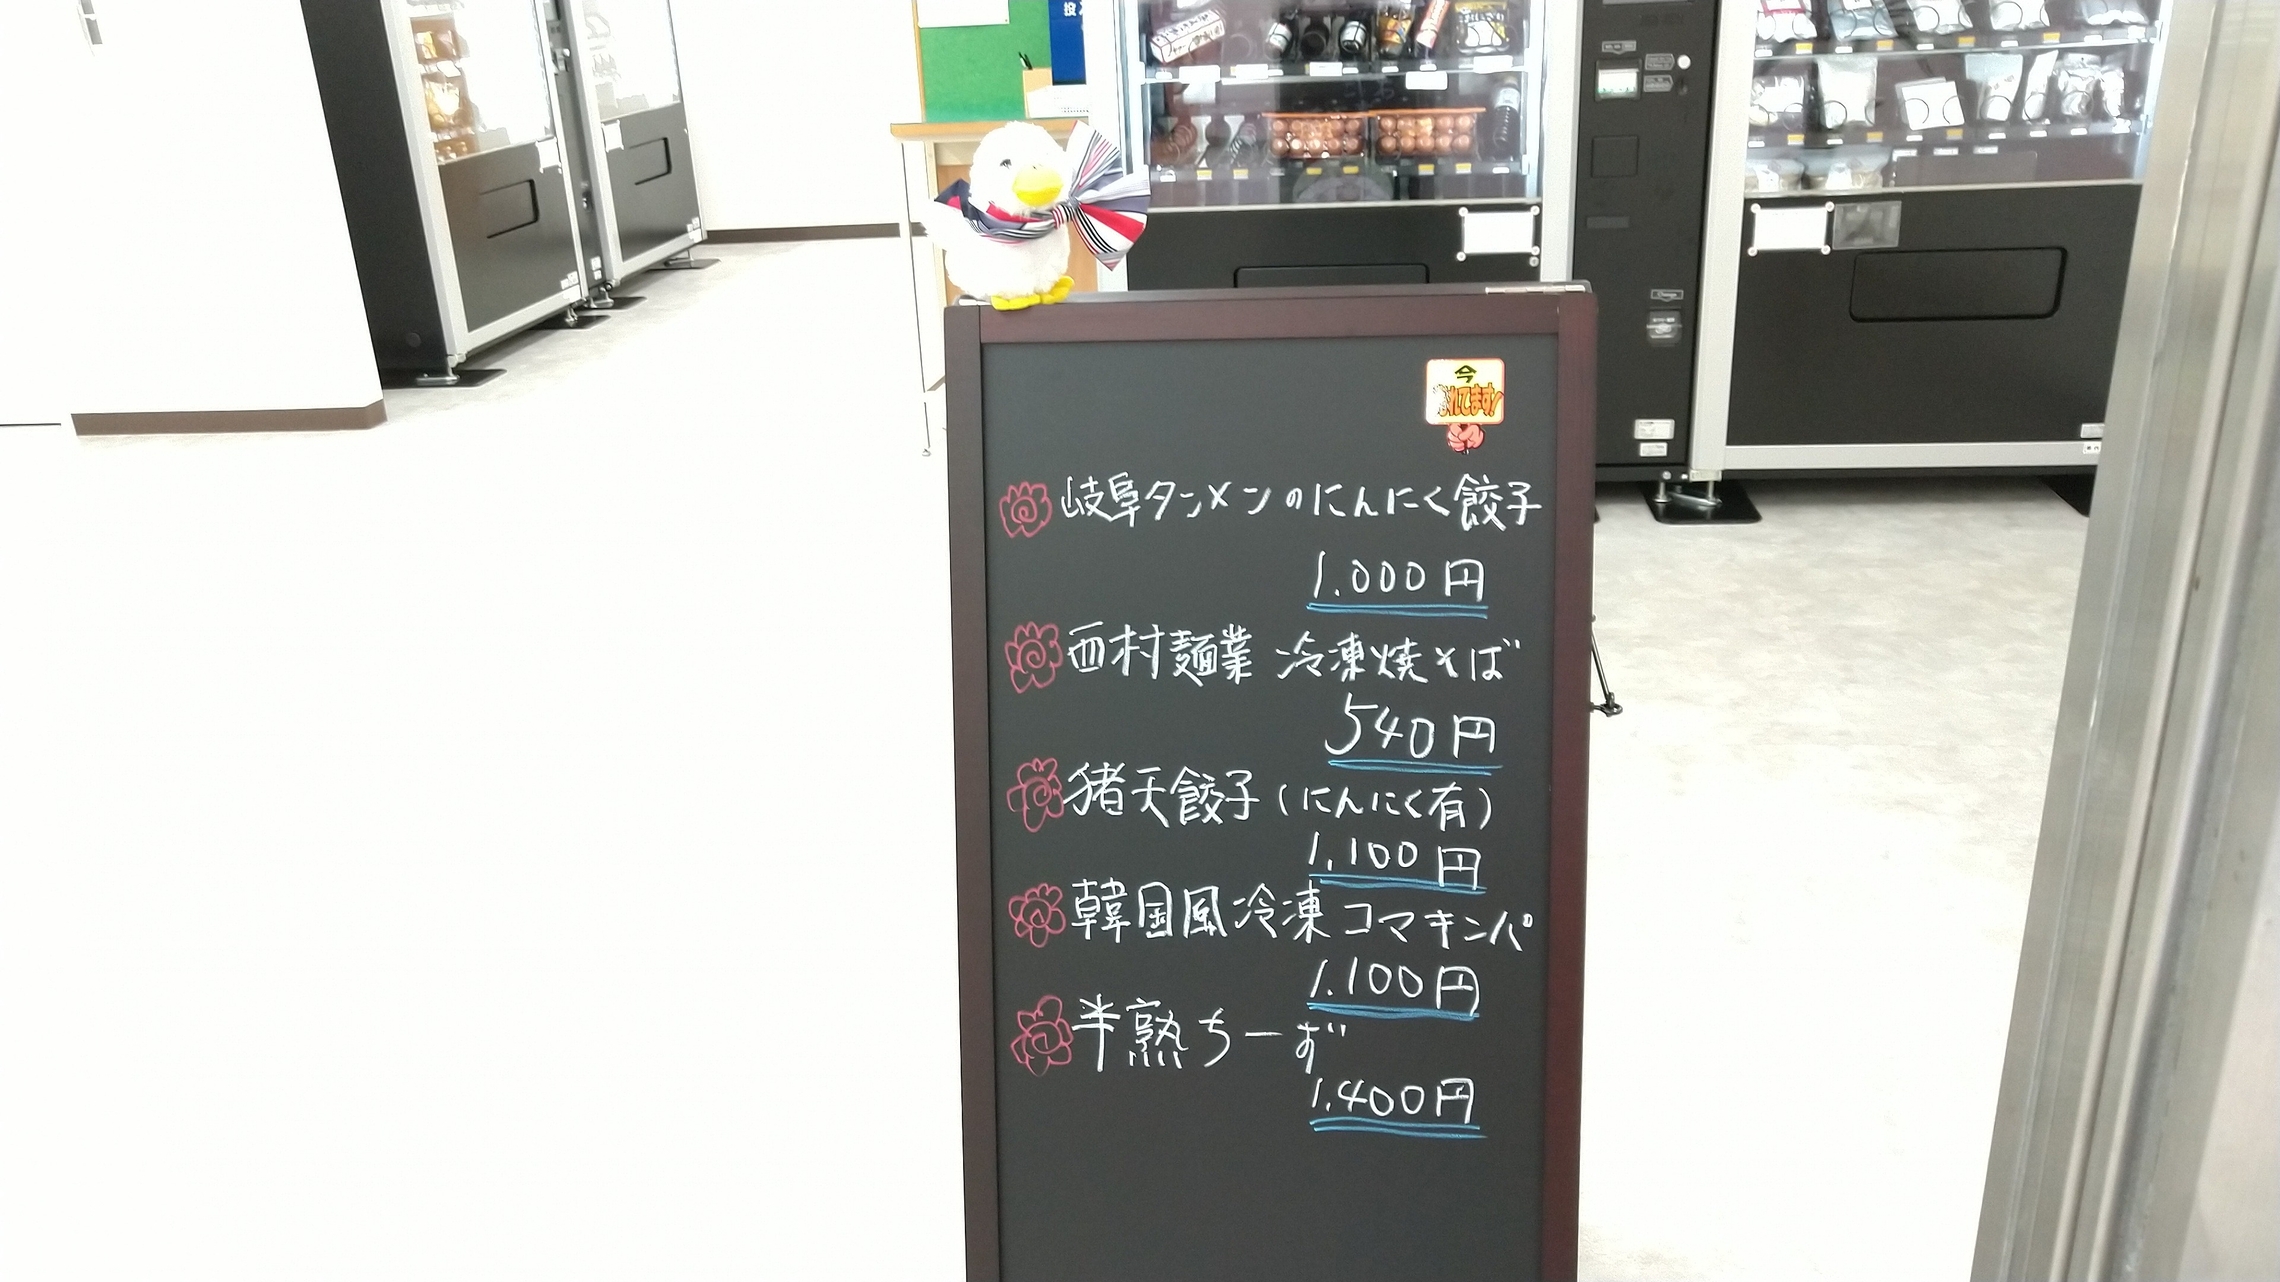 投
今
売れてます!
岐阜タンメンのにんにく餃子
1.000円
西村麺業 冷凍焼そば
540円
猪天餃子(にんにく有)
1.100円
韓国風冷凍コマキンパ
1.100円
半熟ちーず
1.400円